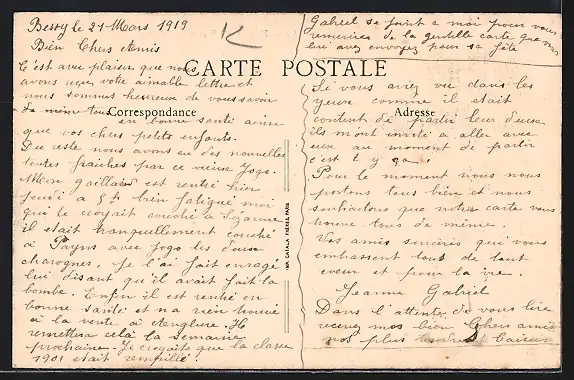 Bessy le 21 Mars 1919
Bien Chers Amis
C'est avec plaisir que nous
avons reçu votre aimable lettre et
nous sommes heureux de vous savoir
tous
en bonne santé ainsi
que vos chers petits enfants.
Du reste nous avons eu des nouvelles
toutes fraiches par ce vieux Jojo.
Mon gaillard est rentré hier
Jeudi a 5h bien fatigué moi
qui le croyait couché a Sézanne
il etait tranquillement couché
a Payns avec Jojo les deux
charognes. Je l'ai fait enragé
lui disant qu'il avait fait la
bombe. Enfin il est rentré en
bonne santé et n'a rien trouvé
a la vente a Anglure. Il
remettra cela la semaine
prochaine. Je croyait que la classe
1901 etait rempillé.
CARTE POSTALE
Correspondance
Adresse
IMP. CATALA FRÈRES, PARIS
Gabriel se joint a moi pour vous
remercier de la gentille carte que vous
lui avez envoyez pour sa fête
Si vous aviez vu dans les
yeux comme il etait
content de partir leur deux
ils m'ont invité a allé avec
eux au moment de partir
c'est t'y ça
Pour le moment nous nous
portons tous bien et nous
souhaitons que notre carte vous
trouve tous de même.
Vos amis sincères qui vous
embrassent tous de tout
cœur et pour la vie.
Jeanne Gabriel
Dans l'attente de vous lire
recevez mes bien chers amis
nos plus tendres baisers